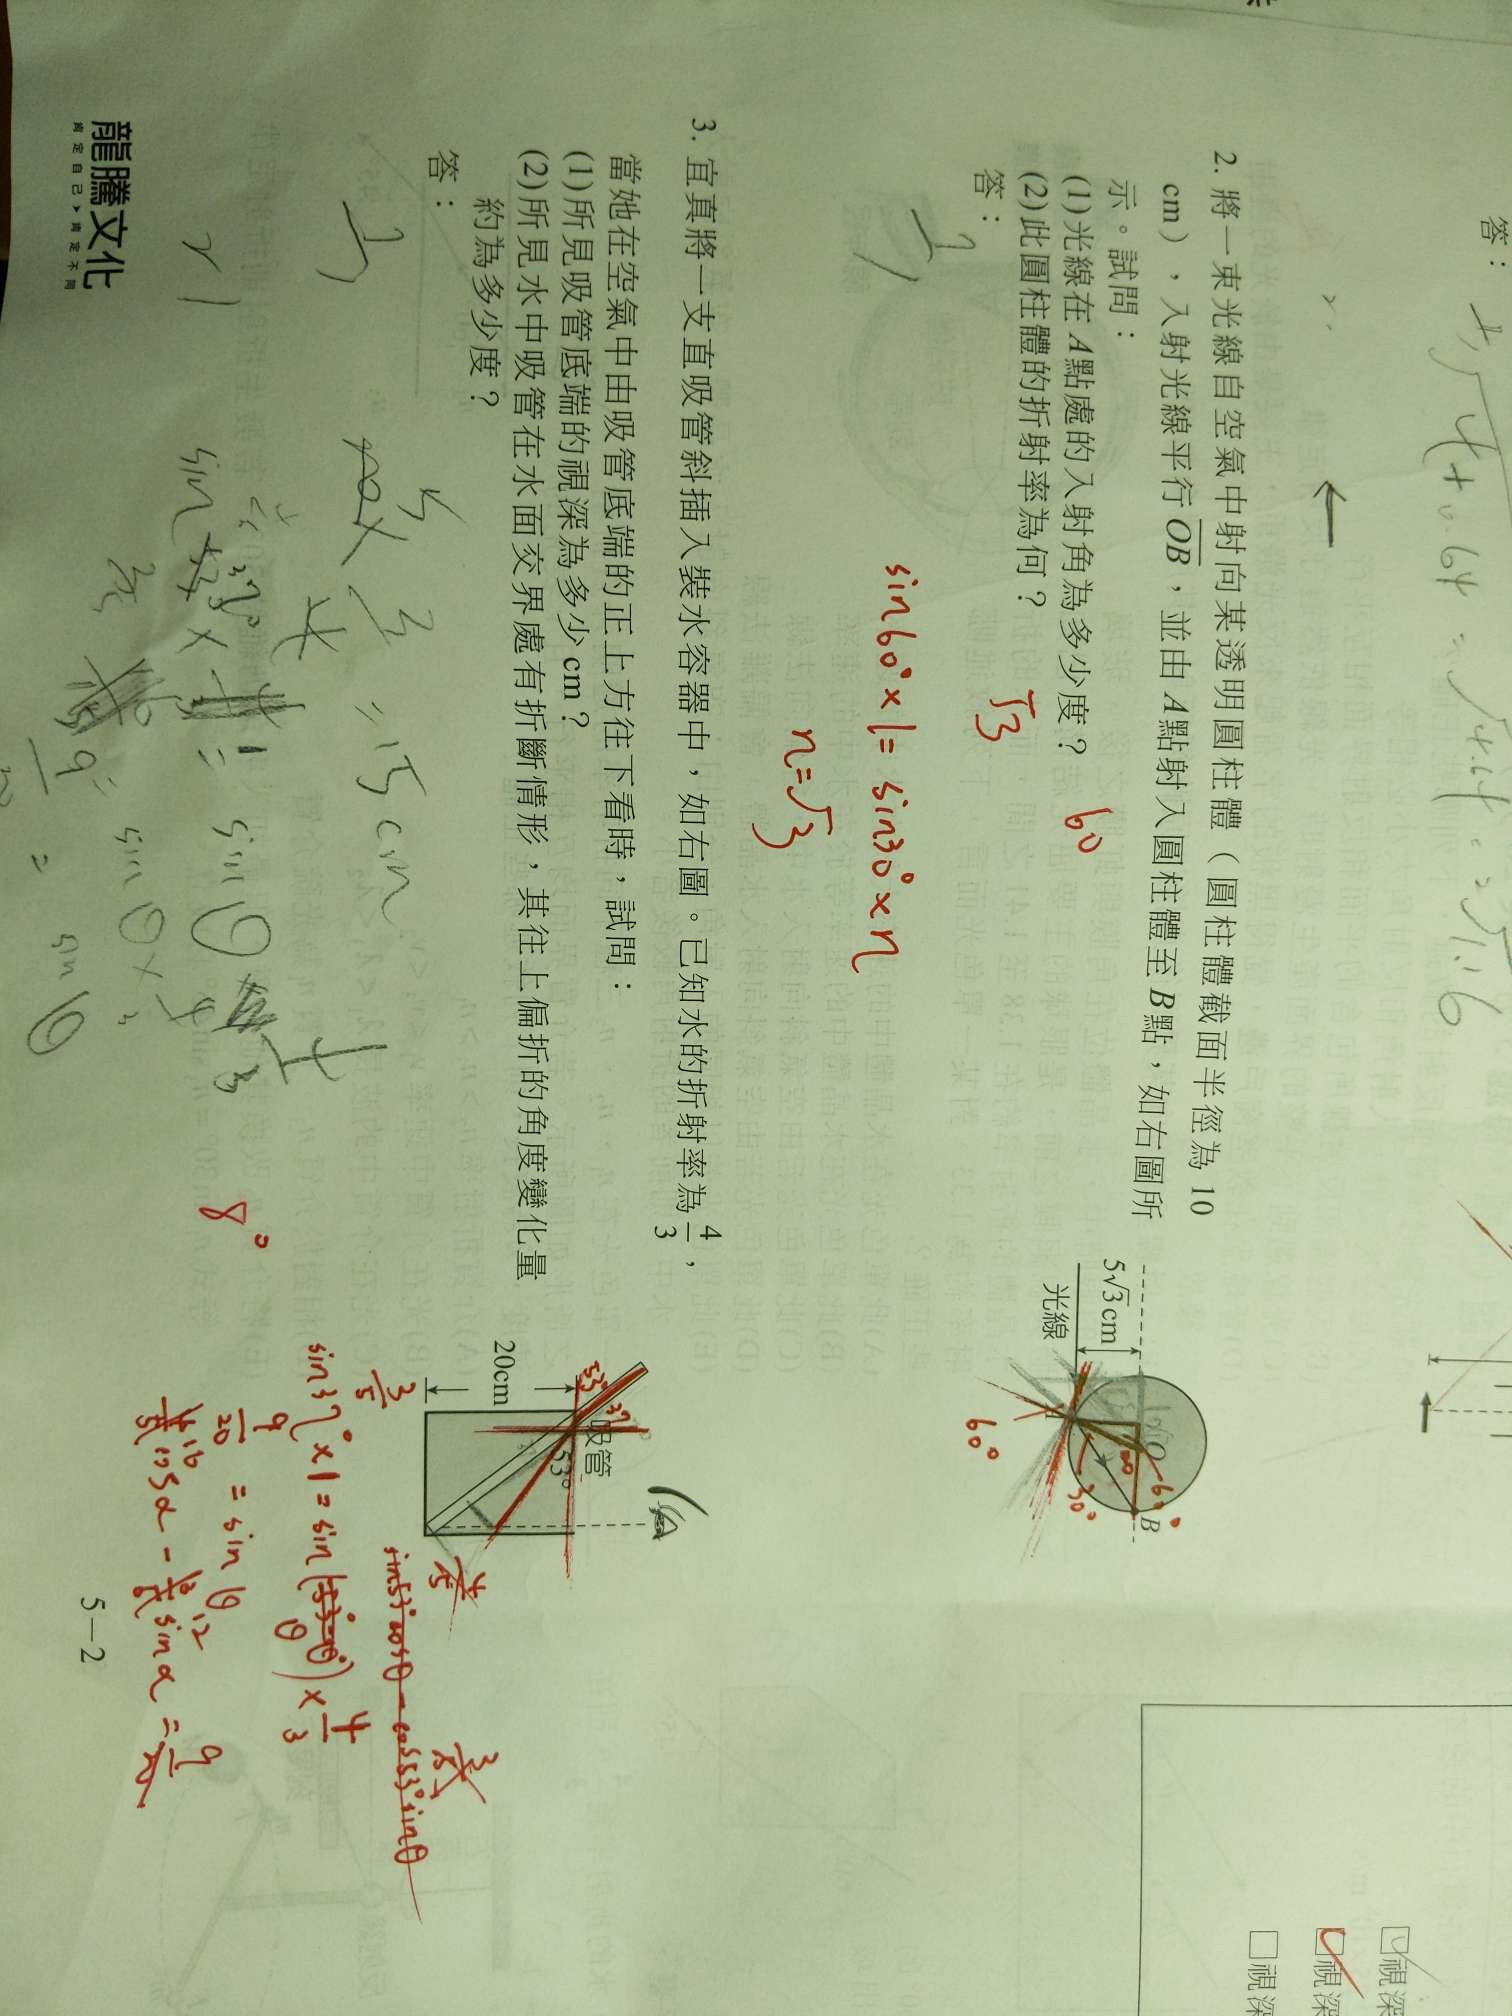 答：
2. 將一束光線自空氣中射向某透明圓柱體（圓柱體截面半徑為 10
cm），入射光線平行OB，並由A點射入圓柱體至B點，如右圖所
示。試問：
(1)光線在A點處的入射角為多少度？ 60
(2)此圓柱體的折射率為何？
答： √3
sin60°×1=sin30°×n
n=√3
5√3cm
光線
O
B
60°
30°
60°
3. 宜真將一支直吸管斜插入裝水容器中，如右圖。已知水的折射率為4/3，
當她在空氣中由吸管底端的正上方往下看時，試問：
(1)所見吸管底端的視深為多少cm？
(2)所見水中吸管在水面交界處有折斷情形，其往上偏折的角度變化量
約為多少度？
答：
=15cm
8°
20cm
吸管
53°
53°
37
sin37°×1=sin(θ)×4/3
3/5
9/20=sinθ
龍騰文化
肯定自己▸肯定不同
5－2
視深
視深
視深